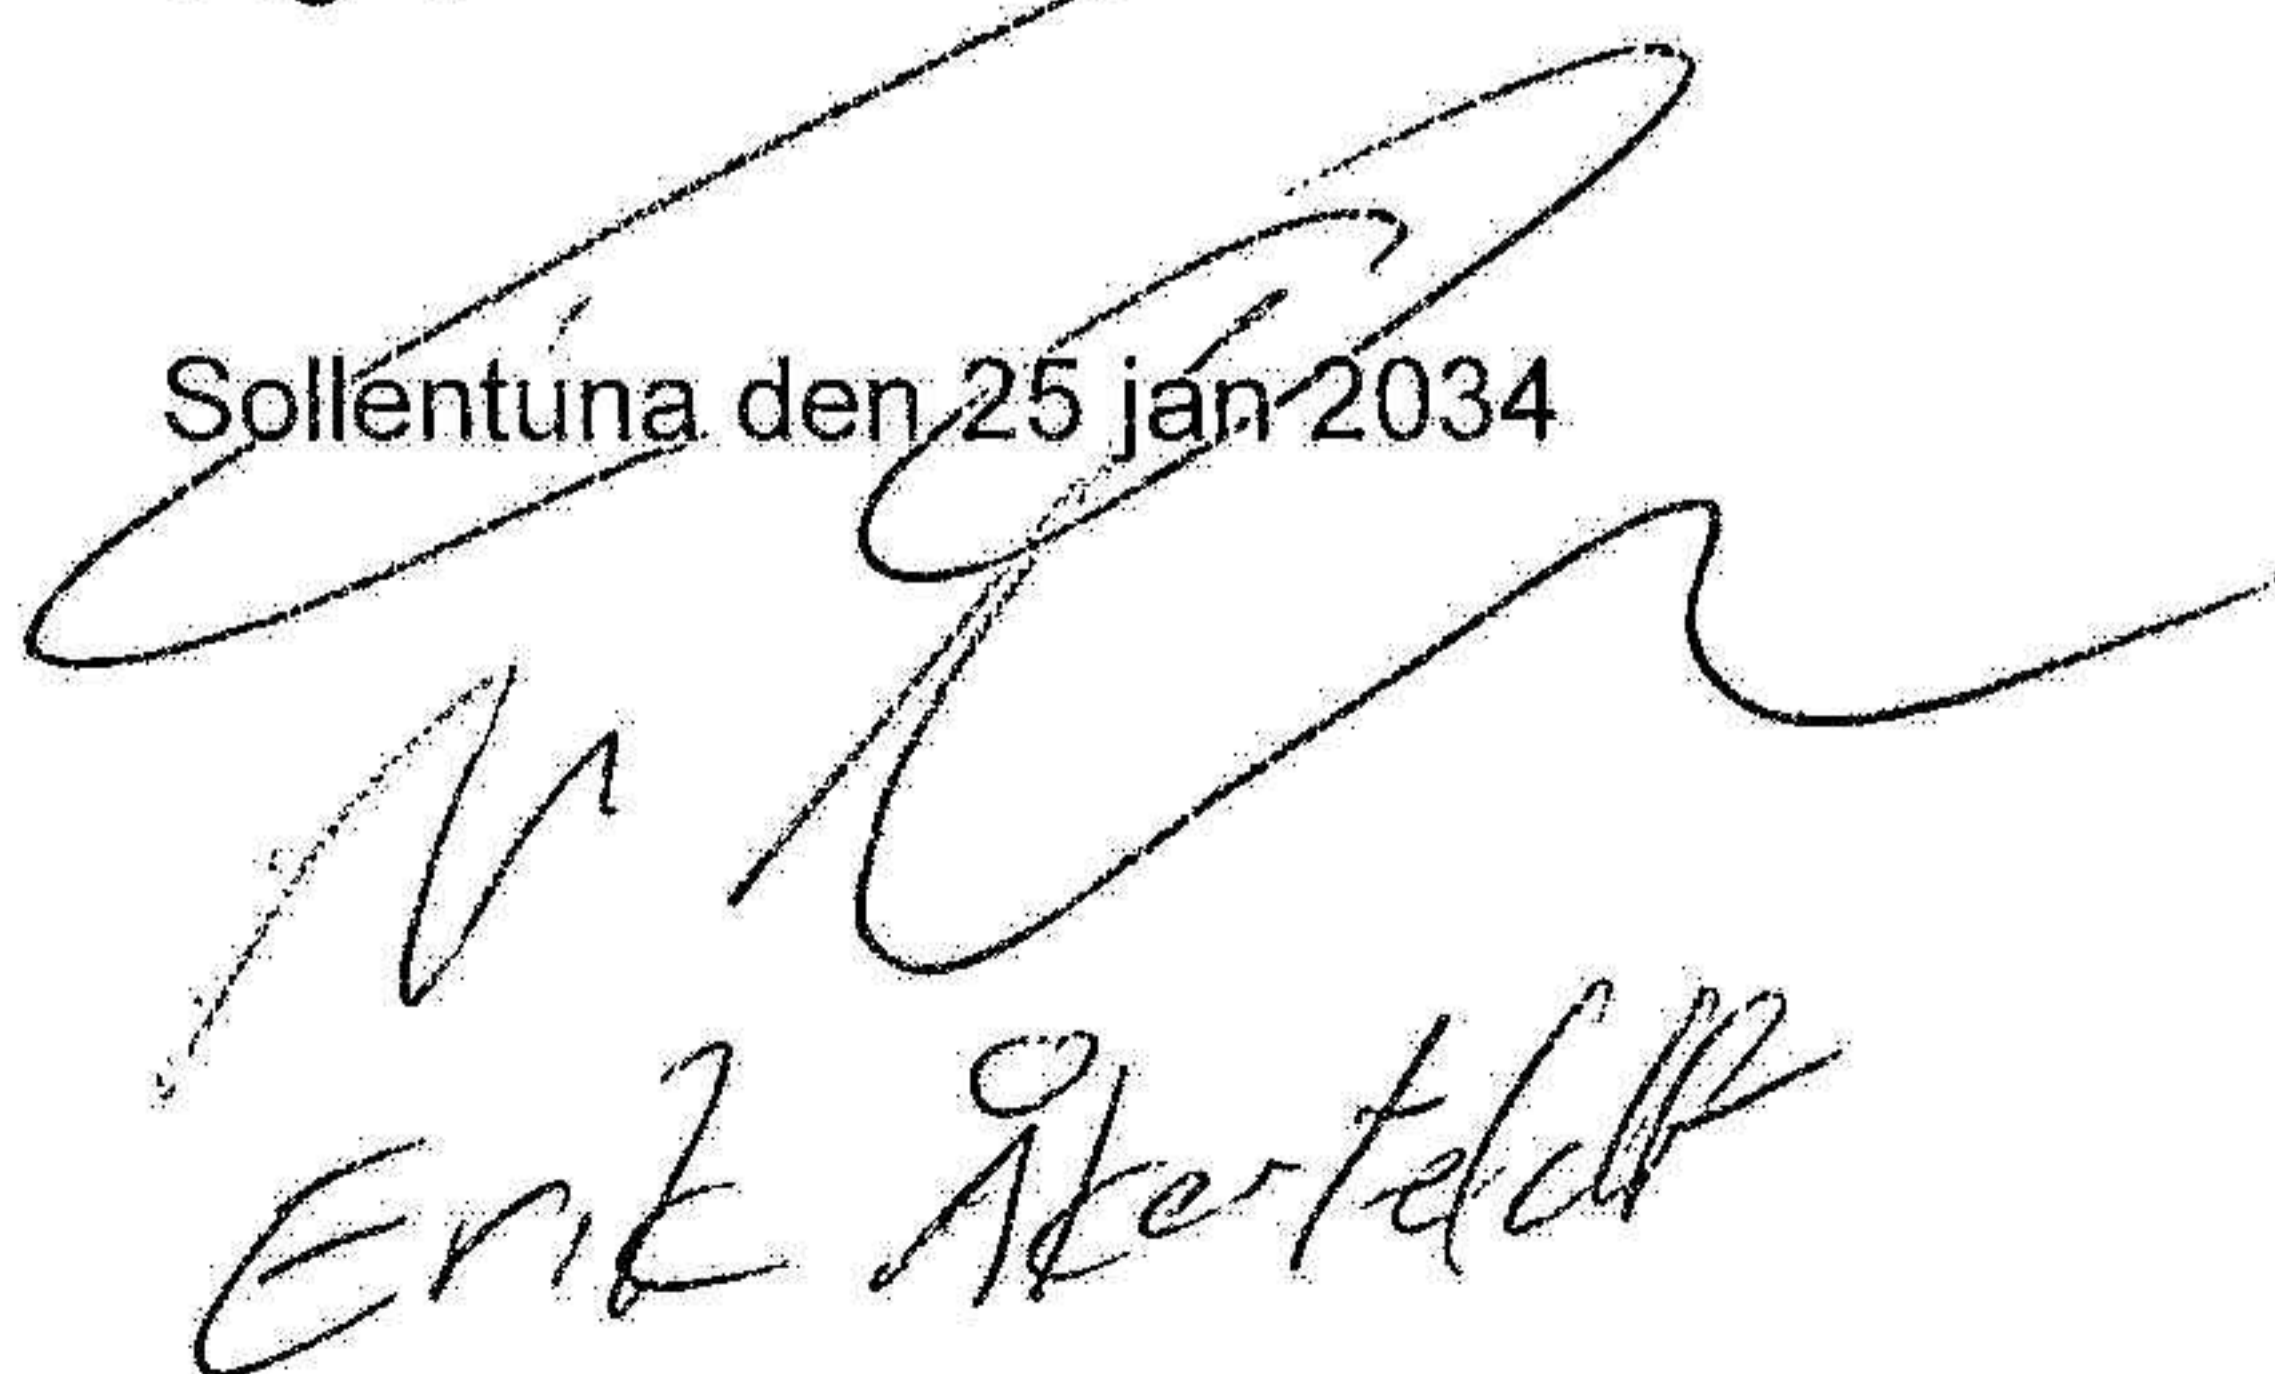 Sollentuna den 25 jan 2034
Erik Åkerfeldt